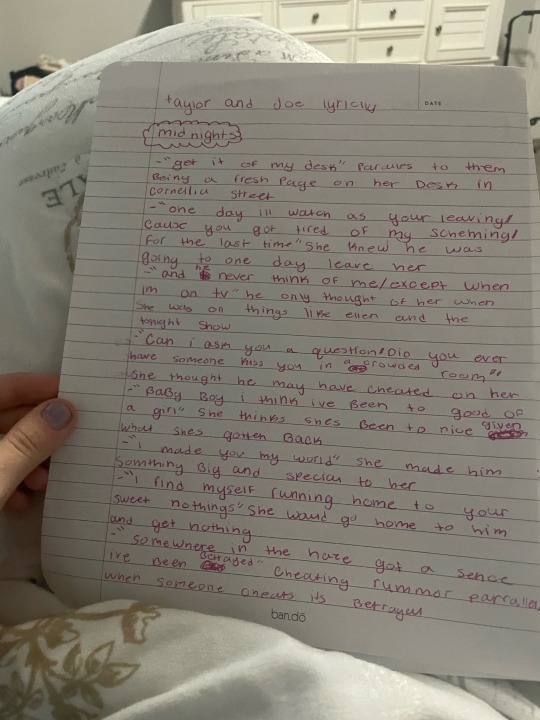 taylor and Joe lyricly
DATE
midnights
-"get it of my desk" Paralles to them
Being a fresh Page on her Desk in
Cornellia street
-"one day ill watch as your leaving/
Cause you got tired of my scheming/
for the last time" She knew he was
going to one day leave her
-"and he never think of me/except when
im on tv" he only thought of her when
she was on things like ellen and the
tonight show
-"Can i ask you a question/Did you ever
have someone kiss you in a crowded room"
She thought he may have cheated on her
-"BaBy Boy i think ive Been to good of
a girl" She thinks shes Been to nice given
what shes gotten Back
-"i made you my world" she made him
somthing Big and special to her
-"i find myself running home to your
sweet nothings" She would go home to him
and get nothing
-"somewhere in the haze got a sence
ive Been Betrayed" Cheating rummor parralla,
when someone cheats its Betrayel
ban.dō